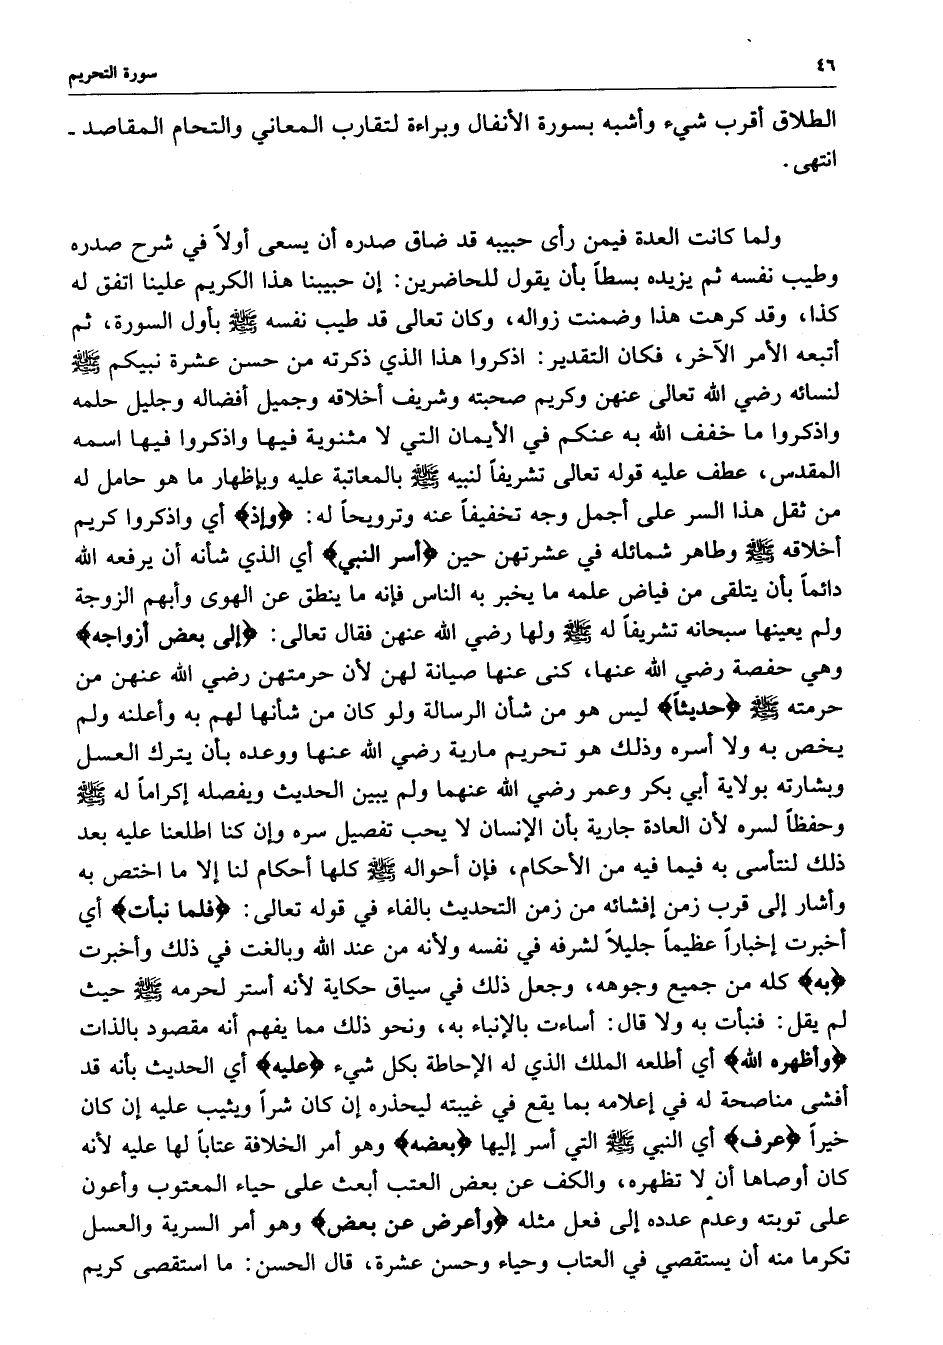 ٤٦
سورة التحريم
الطلاق أقرب شيء وأشبه بسورة الأنفال وبراءة لتقارب المعاني والتحام المقاصد ـ
انتهى .
ولما كانت العدة فيمن رأى حبيبه قد ضاق صدره أن يسعى أولاً في شرح صدره
وطيب نفسه ثم يزيده بسطاً بأن يقول للحاضرين : إن حبيبنا هذا الكريم علينا اتفق له
كذا، وقد كرهت هذا وضمنت زواله، وكان تعالى قد طيب نفسه ﷺ بأول السورة، ثم
أتبعه الأمر الآخر، فكان التقدير : اذكروا هذا الذي ذكرته من حسن عشرة نبيكم ﷺ
لنسائه رضي الله تعالى عنهن وكريم صحبته وشريف أخلاقه وجميل أفضاله وجليل حلمه
واذكروا ما خفف الله به عنكم في الأيمان التي لا مثنوية فيها واذكروا فيها اسمه
المقدس، عطف عليه قوله تعالى تشريفاً لنبيه ﷺ بالمعاتبة عليه وبإظهار ما هو حامل له
من ثقل هذا السر على أجمل وجه تخفيفاً عنه وترويحاً له : ﴿وإذ﴾ أي واذكروا كريم
أخلاقه ﷺ وطاهر شمائله في عشرتهن حين ﴿أسر النبي﴾ أي الذي شأنه أن يرفعه الله
دائماً بأن يتلقى من فياض علمه ما يخبر به الناس فإنه ما ينطق عن الهوى وأبهم الزوجة
ولم يعينها سبحانه تشريفاً له ﷺ ولها رضي الله عنهن فقال تعالى : ﴿إلى بعض أزواجه﴾
وهي حفصة رضي الله عنها، كنى عنها صيانة لهن لأن حرمتهن رضي الله عنهن من
حرمته ﷺ ﴿حديثاً﴾ ليس هو من شأن الرسالة ولو كان من شأنها لهم به وأعلنه ولم
يخص به ولا أسره وذلك هو تحريم مارية رضي الله عنها ووعده بأن يترك العسل
وبشارته بولاية أبي بكر وعمر رضي الله عنهما ولم يبين الحديث ويفصله إكراماً له ﷺ
وحفظاً لسره لأن العادة جارية بأن الإنسان لا يحب تفصيل سره وإن كنا اطلعنا عليه بعد
ذلك لنتأسى به فيما فيه من الأحكام، فإن أحواله ﷺ كلها أحكام لنا إلا ما اختص به
وأشار إلى قرب زمن إفشائه من زمن التحديث بالفاء في قوله تعالى : ﴿فلما نبأت﴾ أي
أخبرت إخباراً عظيماً جليلاً لشرفه في نفسه ولأنه من عند الله وبالغت في ذلك وأخبرت
﴿به﴾ كله من جميع وجوهه، وجعل ذلك في سياق حكاية لأنه أستر لحرمه ﷺ حيث
لم يقل : فنبأت به ولا قال : أساءت بالإنباء به، ونحو ذلك مما يفهم أنه مقصود بالذات
﴿وأظهره الله﴾ أي أطلعه الملك الذي له الإحاطة بكل شيء ﴿عليه﴾ أي الحديث بأنه قد
أفشى مناصحة له في إعلامه بما يقع في غيبته ليحذره إن كان شراً ويثيب عليه إن كان
خيراً ﴿عرف﴾ أي النبي ﷺ التي أسر إليها ﴿بعضه﴾ وهو أمر الخلافة عتاباً لها عليه لأنه
كان أوصاها أن لا تظهره، والكف عن بعض العتب أبعث على حياء المعتوب وأعون
على توبته وعدم عدده إلى فعل مثله ﴿وأعرض عن بعض﴾ وهو أمر السرية والعسل
تكرما منه أن يستقصي في العتاب وحياء وحسن عشرة، قال الحسن : ما استقصى كريم